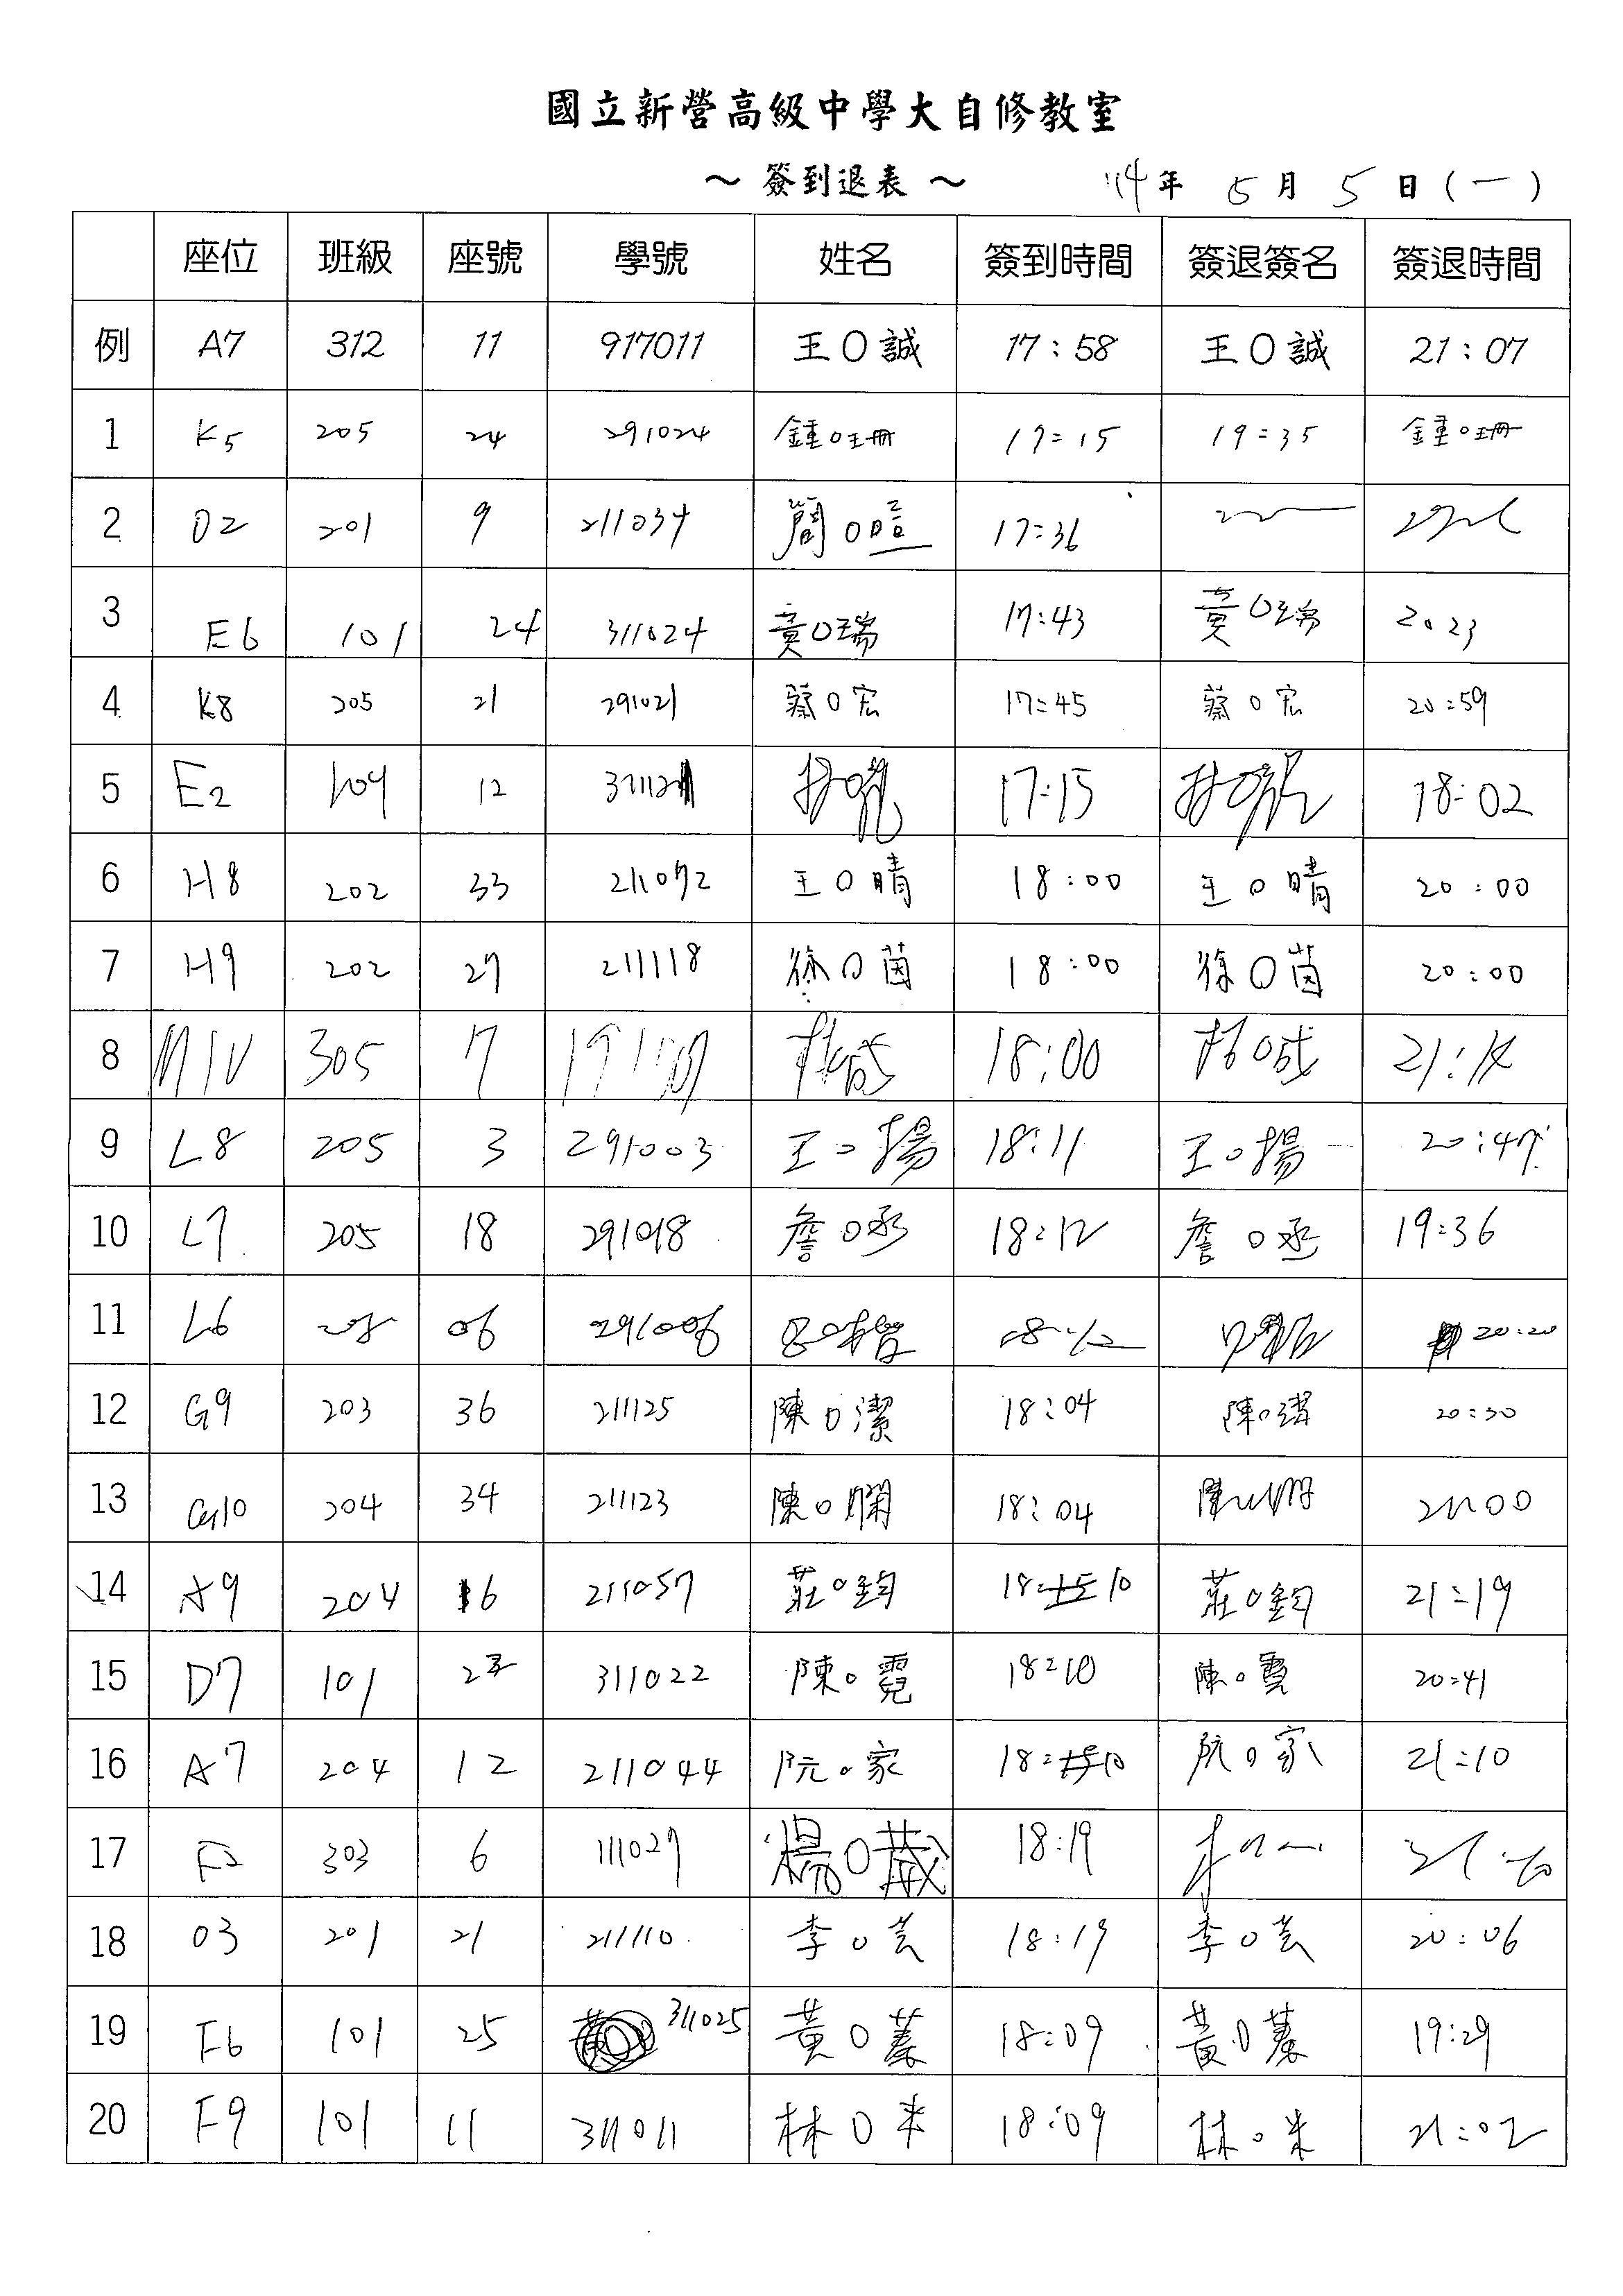 國立新營高級中學大自修教室
～ 簽到退表 ～ 114年 5月 5日(一)
座位 班級 座號 學號 姓名 簽到時間 簽退簽名 簽退時間
例 A7 312 11 917011 王O誠 17:58 王O誠 21:07
1 K5 205 24 291024 鍾O珊 17:15 19:35 鍾O珊
2 O2 201 9 211034 簡O暄 17:36
3 E6 101 24 311024 黃O瑞 17:43 黃O瑞 2023
4 K8 205 21 291021 蔡O宏 17:45 蔡O宏 20:59
5 E2 109 12 17:15 18:02
6 H8 202 33 211072 王O晴 18:00 王O晴 20:00
7 H9 202 27 211118 徐O茵 18:00 徐O茵 20:00
8 M10 305 7 18:00 21:14
9 L8 205 3 291003 王O揚 18:11 王O揚 20:47
10 L7 205 18 291018 詹O丞 18:12 詹O丞 19:36
11 L6 205 06 291006 18:12 20:20
12 G9 203 36 211125 陳O潔 18:04 陳O潔 20:30
13 G10 204 34 211123 陳O嫻 18:04 21:00
14 A9 204 16 211057 莊O鈞 18:10 莊O鈞 21:19
15 D7 101 22 311022 陳O霓 18:10 陳O霓 20:41
16 A7 204 12 211044 阮O家 18:10 阮O家 21:10
17 F2 303 6 111027 楊O葳 18:19
18 O3 201 21 211110 李O芸 18:19 李O芸 20:06
19 F6 101 25 311025 黃O蓁 18:09 黃O蓁 19:29
20 F9 101 11 311011 林O米 18:09 林O米 21:02